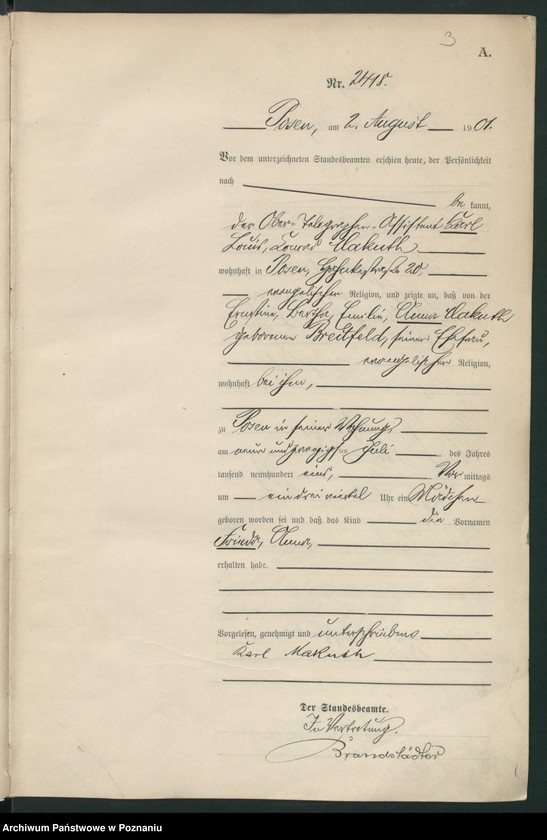 3
A.
Nr. 2418.
Posen, am 2. August 1901.
Vor dem unterzeichneten Standesbeamten erschien heute, der Persönlichkeit
nach be kannt,
der Ober-Telegraphen-Assistent Karl
Louis, Konrad Makuth
wohnhaft in Posen, 20,
evangelischer Religion, und zeigte an, daß von der
Ernstine, Bertha, Emilie, Anna Makuth
geborenen Breitfeld, seiner Ehefrau,
evangelischer Religion,
wohnhaft bei ihm,
zu Posen in seiner Wohnung
am neun und zwanzigsten Juli des Jahres
tausend neunhundert eins, Vor mittags
um ein dreiviertel Uhr ein Mädchen
geboren worden sei und daß das Kind die Vornamen
Frieda, Anna,
erhalten habe.
Vorgelesen, genehmigt und unterschrieben
Karl Makuth
Der Standesbeamte.
In Vertretung.
Brandstädter
Archiwum Państwowe w Poznaniu